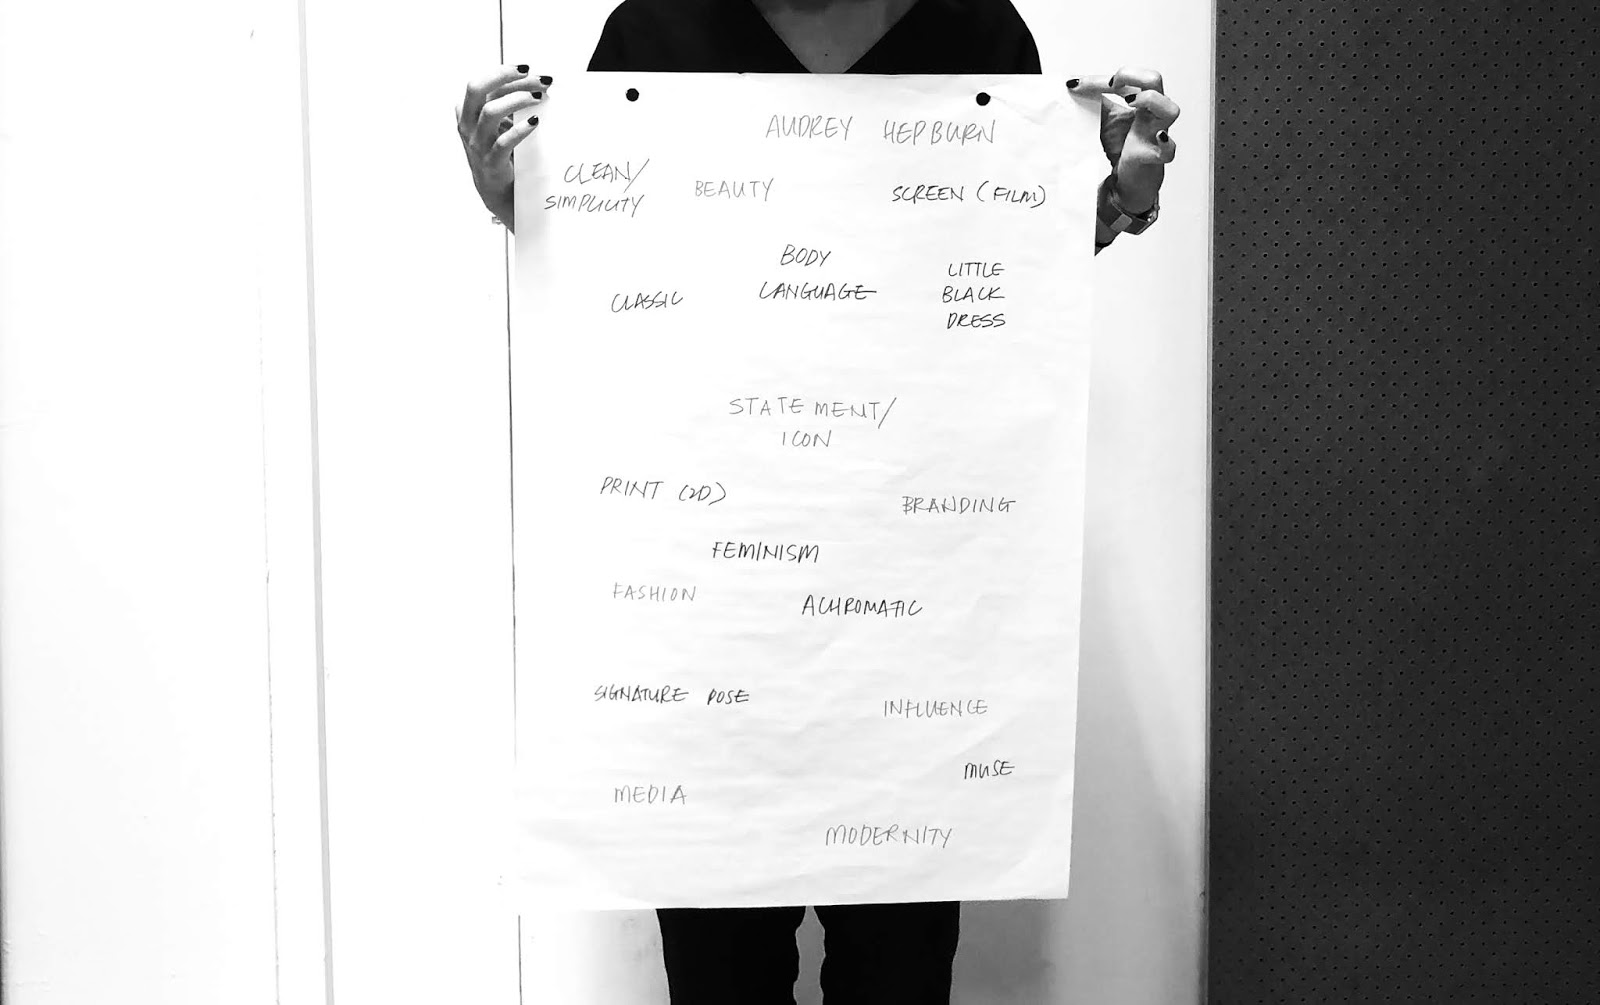 AUDREY HEPBURN
CLEAN/
SIMPLICITY
BEAUTY
SCREEN (FILM)
BODY
LANGUAGE
CLASSIC
LITTLE
BLACK
DRESS
STATEMENT/
ICON
PRINT (2D)
BRANDING
FEMINISM
FASHION
ACHROMATIC
SIGNATURE POSE
INFLUENCE
MUSE
MEDIA
MODERNITY